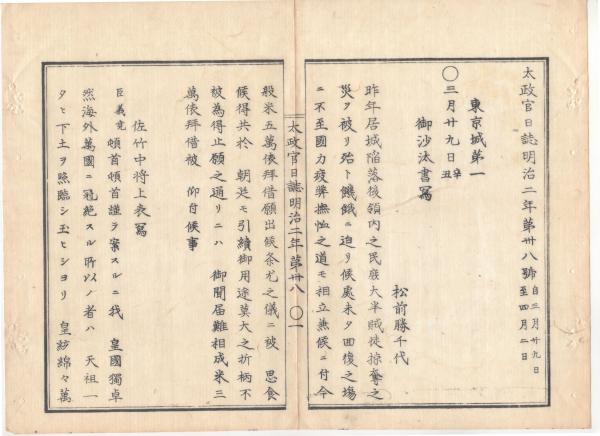 太政官日誌明治二年第卅八號 自三月廿九日 至四月二日
東京城第一
○三月廿九日 辛丑
御沙汰書寫
松前勝千代
昨年居城陥落後領内之民庶大半賊徒掠奪之
災ヲ被リ殆ト饑餓ニ迫リ候處未タ回復之場
ニ不至國力疲弊撫恤之道モ相立兼候ニ付今
太政官日誌明治二年第卅八 ○一
般米五萬俵拜借願出候条尤之儀ニ被 思食
候得共於 朝廷モ引續御用途莫大之折柄不
被為得止願之通リニハ 御聞届難相成米三
萬俵拜借被 仰付候事
佐竹中將上表寫
臣義堯頓首頓首謹テ案スルニ我 皇國獨卓
然海外萬國ニ冠絶スル所以ノ者ハ 天祖一
タヒ下土ヲ照臨シ玉ヒシヨリ 皇統綿々萬